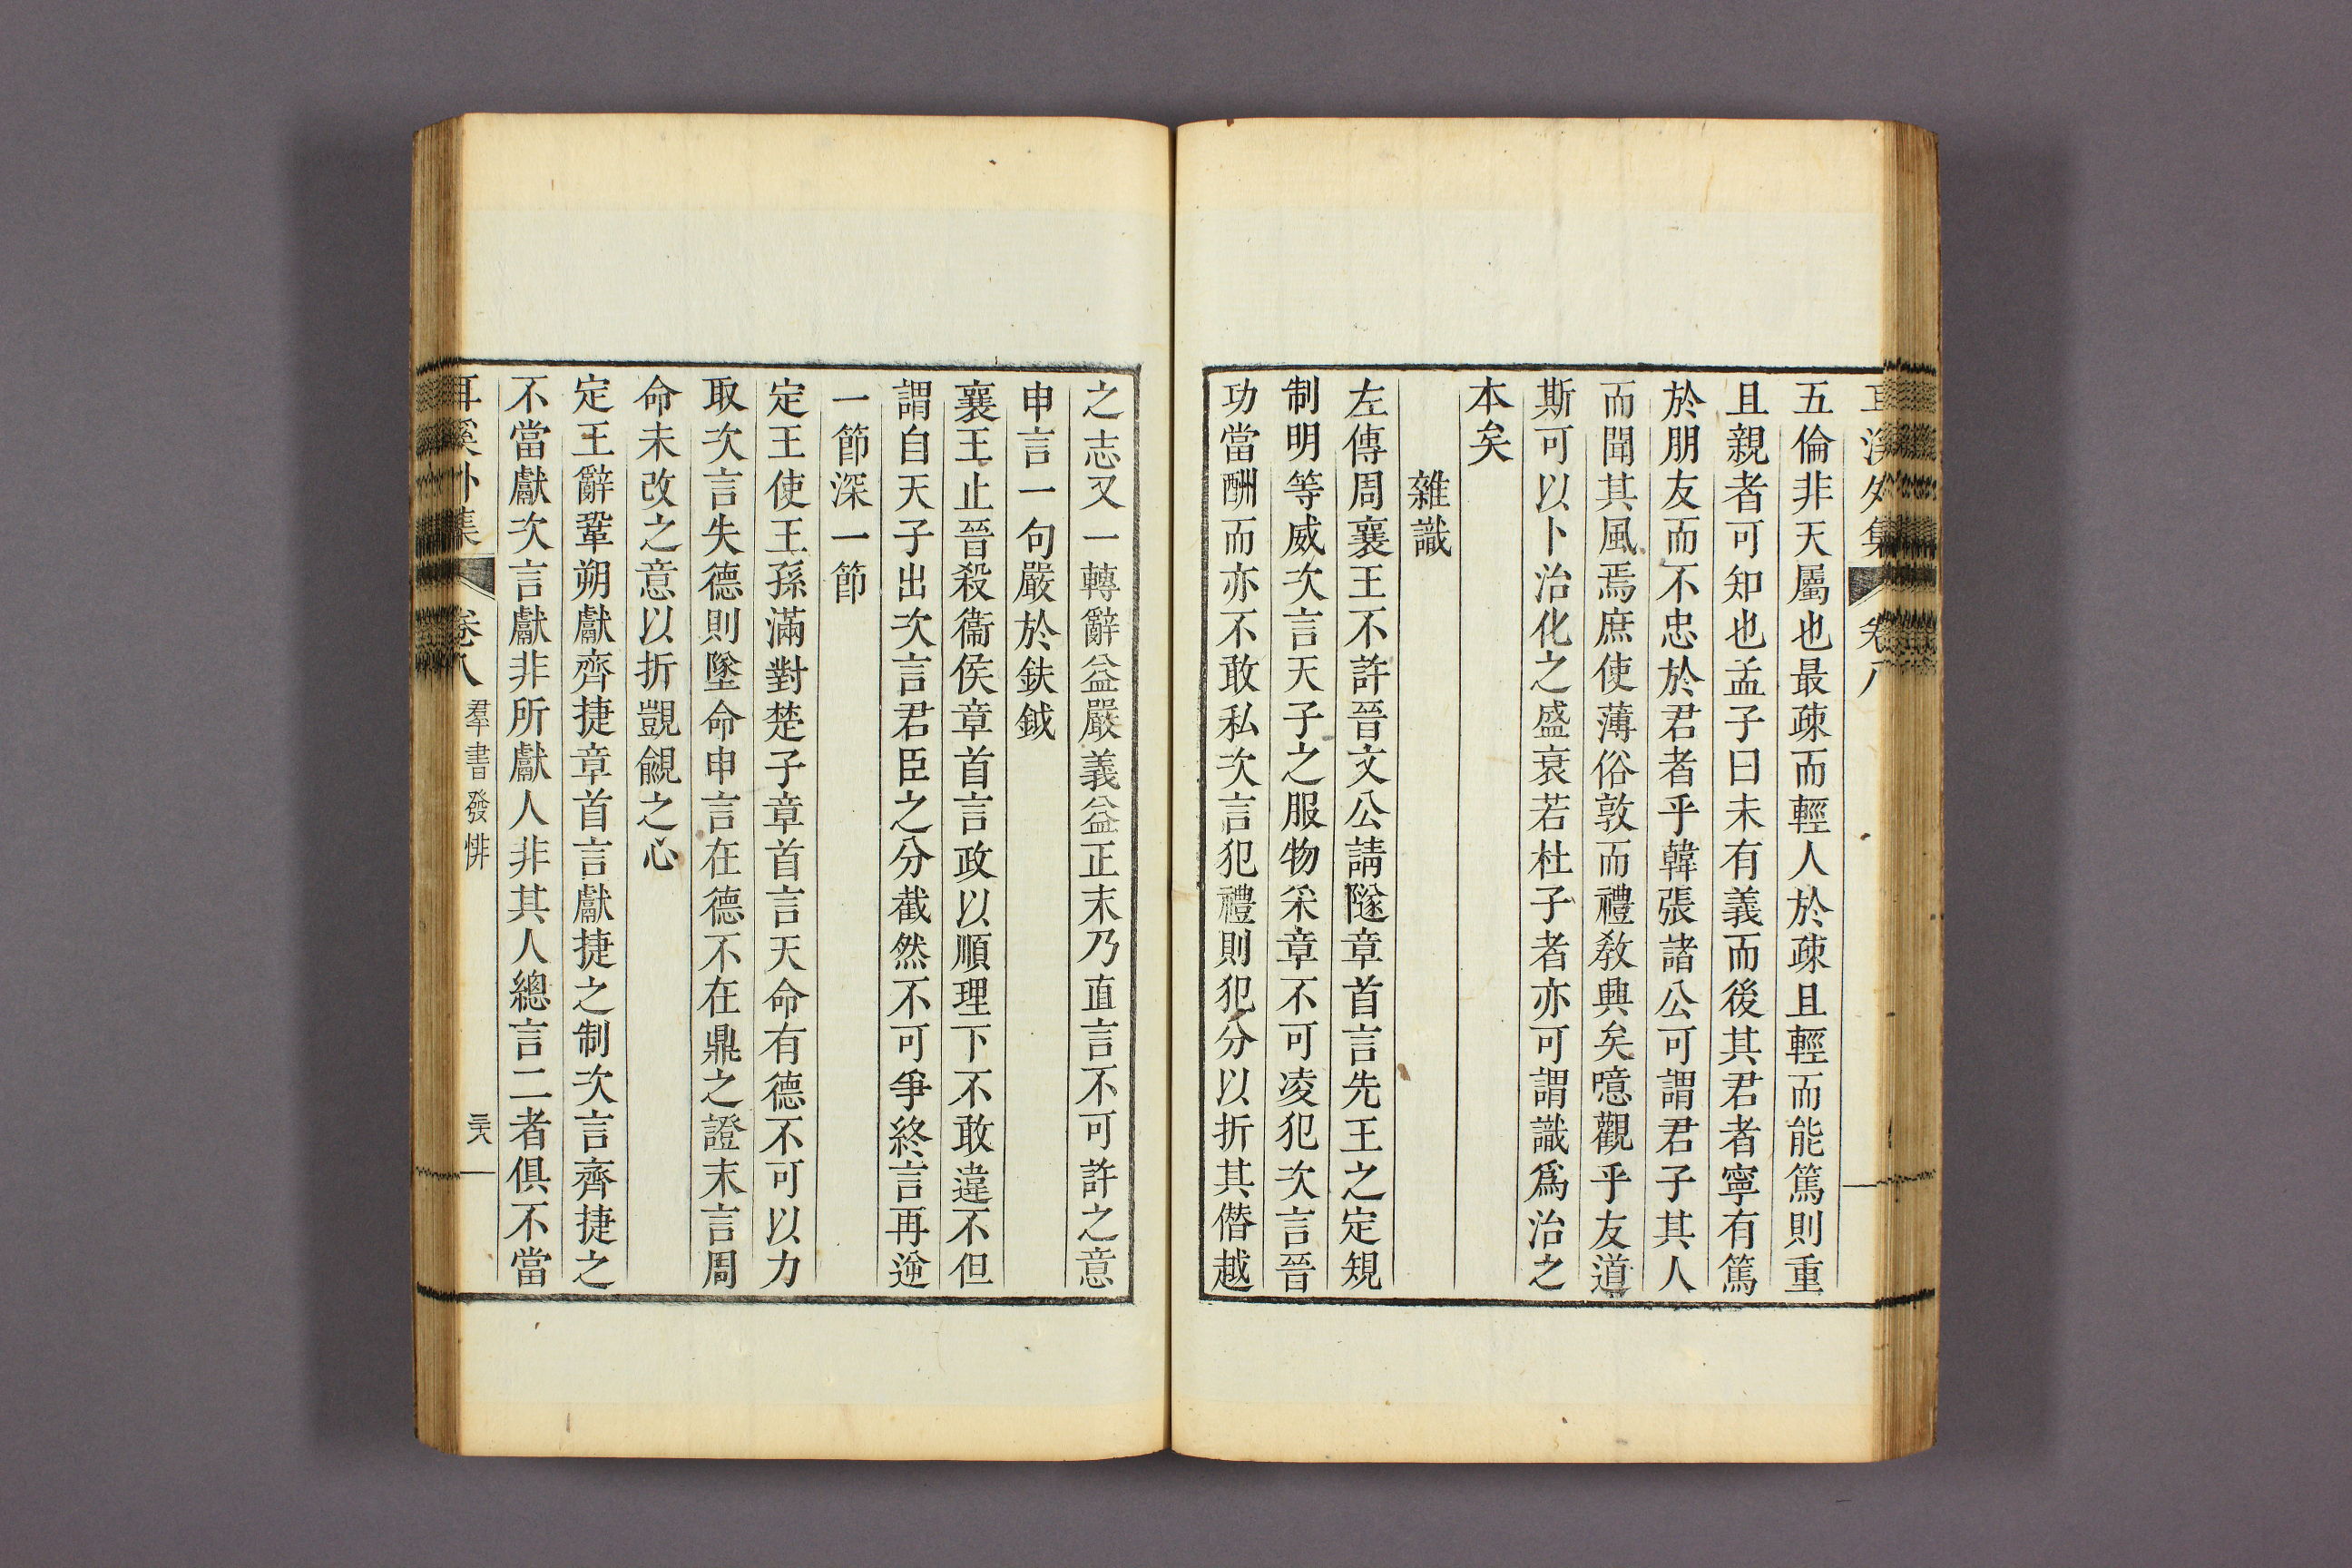 耳溪外集 卷八
五倫非天屬也最疎而輕人於疎且輕而能篤則重
且親者可知也孟子曰未有義而後其君者寧有篤
於朋友而不忠於君者乎韓張諸公可謂君子其人
而聞其風焉庶使薄俗敦而禮敎興矣噫觀乎友道
斯可以卜治化之盛衰若杜子者亦可謂識爲治之
本矣
雜識
左傳周襄王不許晉文公請隧章首言先王之定規
制明等威次言天子之服物采章不可凌犯次言晉
功當酬而亦不敢私次言犯禮則犯分以折其僭越
之志又一轉辭益嚴義益正末乃直言不可許之意
申言一句嚴於鈇鉞
襄王止晉殺衞侯章首言政以順理下不敢違不但
謂自天子出次言君臣之分截然不可爭終言再逆
一節深一節
定王使王孫滿對楚子章首言天命有德不可以力
取次言失德則墜命申言在德不在鼎之證末言周
命未改之意以折覬覦之心
定王辭鞏朔獻齊捷章首言獻捷之制次言齊捷之
不當獻次言獻非所獻人非其人總言二者俱不當
耳溪外集 卷八 羣書發悱 三十八